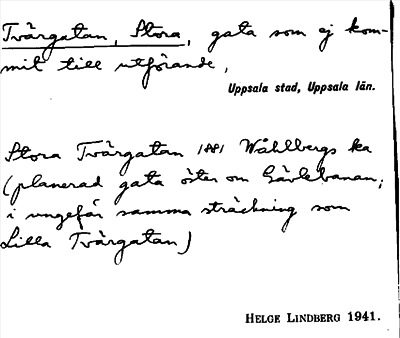 Tvärgatan, Stora, gata som ej kom-
mit till utförande,
Uppsala stad, Uppsala län.
Stora Tvärgatan 1881 Wåhlbergs ka
(planerad gata öster om Gävlebanan,
i ungefär samma sträckning som
Lilla Tvärgatan)
HELGE LINDBERG 1941.